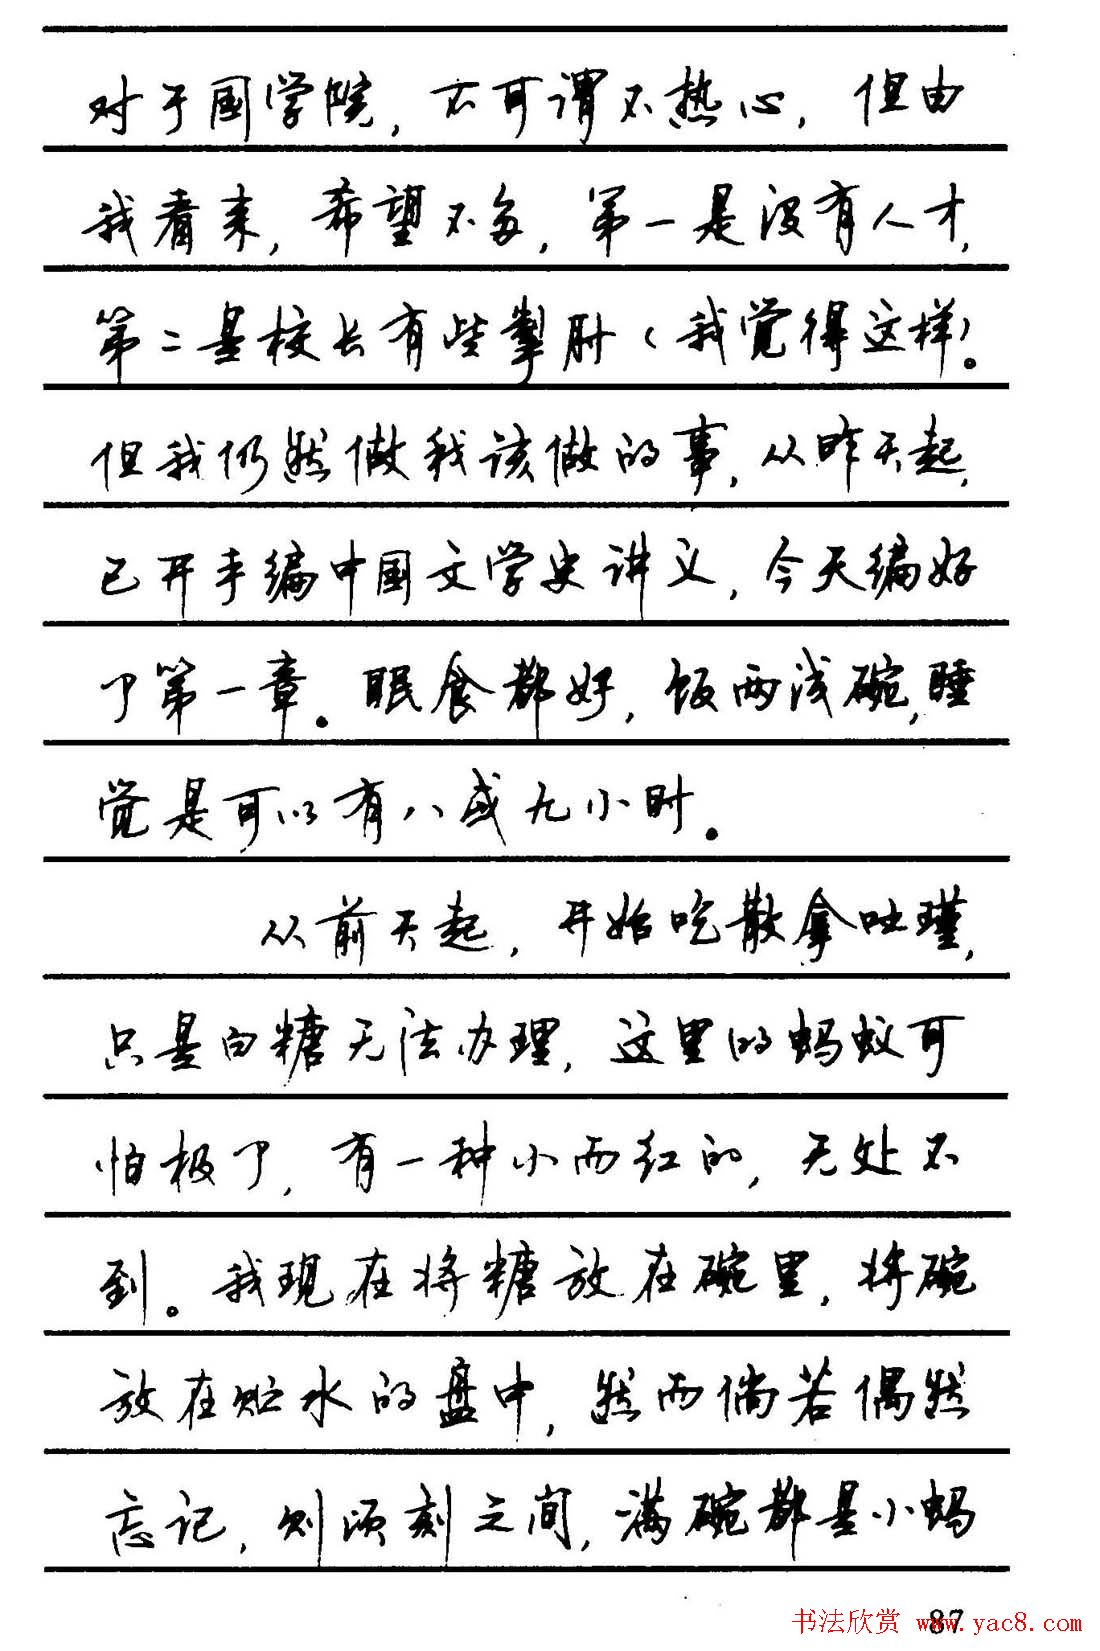 对于国学院，不可谓不热心，但由
我看来，希望不多，第一是没有人才，
第二是校长有些掣肘（我觉得这样）。
但我仍然做我该做的事，从昨天起，
已开手编中国文学史讲义，今天编好
了第一章。眠食都好，饭两浅碗，睡
觉是可以有八或九小时。
从前天起，开始吃散拿吐瑾，
只是白糖无法办理，这里的蚂蚁可
怕极了，有一种小而红的，无处不
到。我现在将糖放在碗里，将碗
放在贮水的盘中，然而倘若偶然
忘记，则顷刻之间，满碗都是小蚂
87
书法欣赏 www.yac8.com